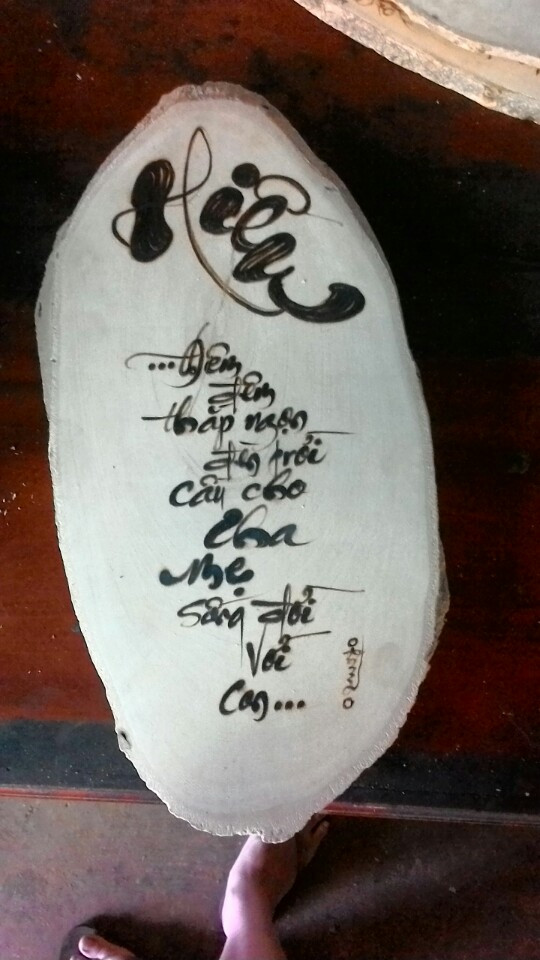 Hiếu
...Đêm
đêm
thắp ngọn
đèn trời
cầu cho
Cha
Mẹ
sống đời
Với
Con...